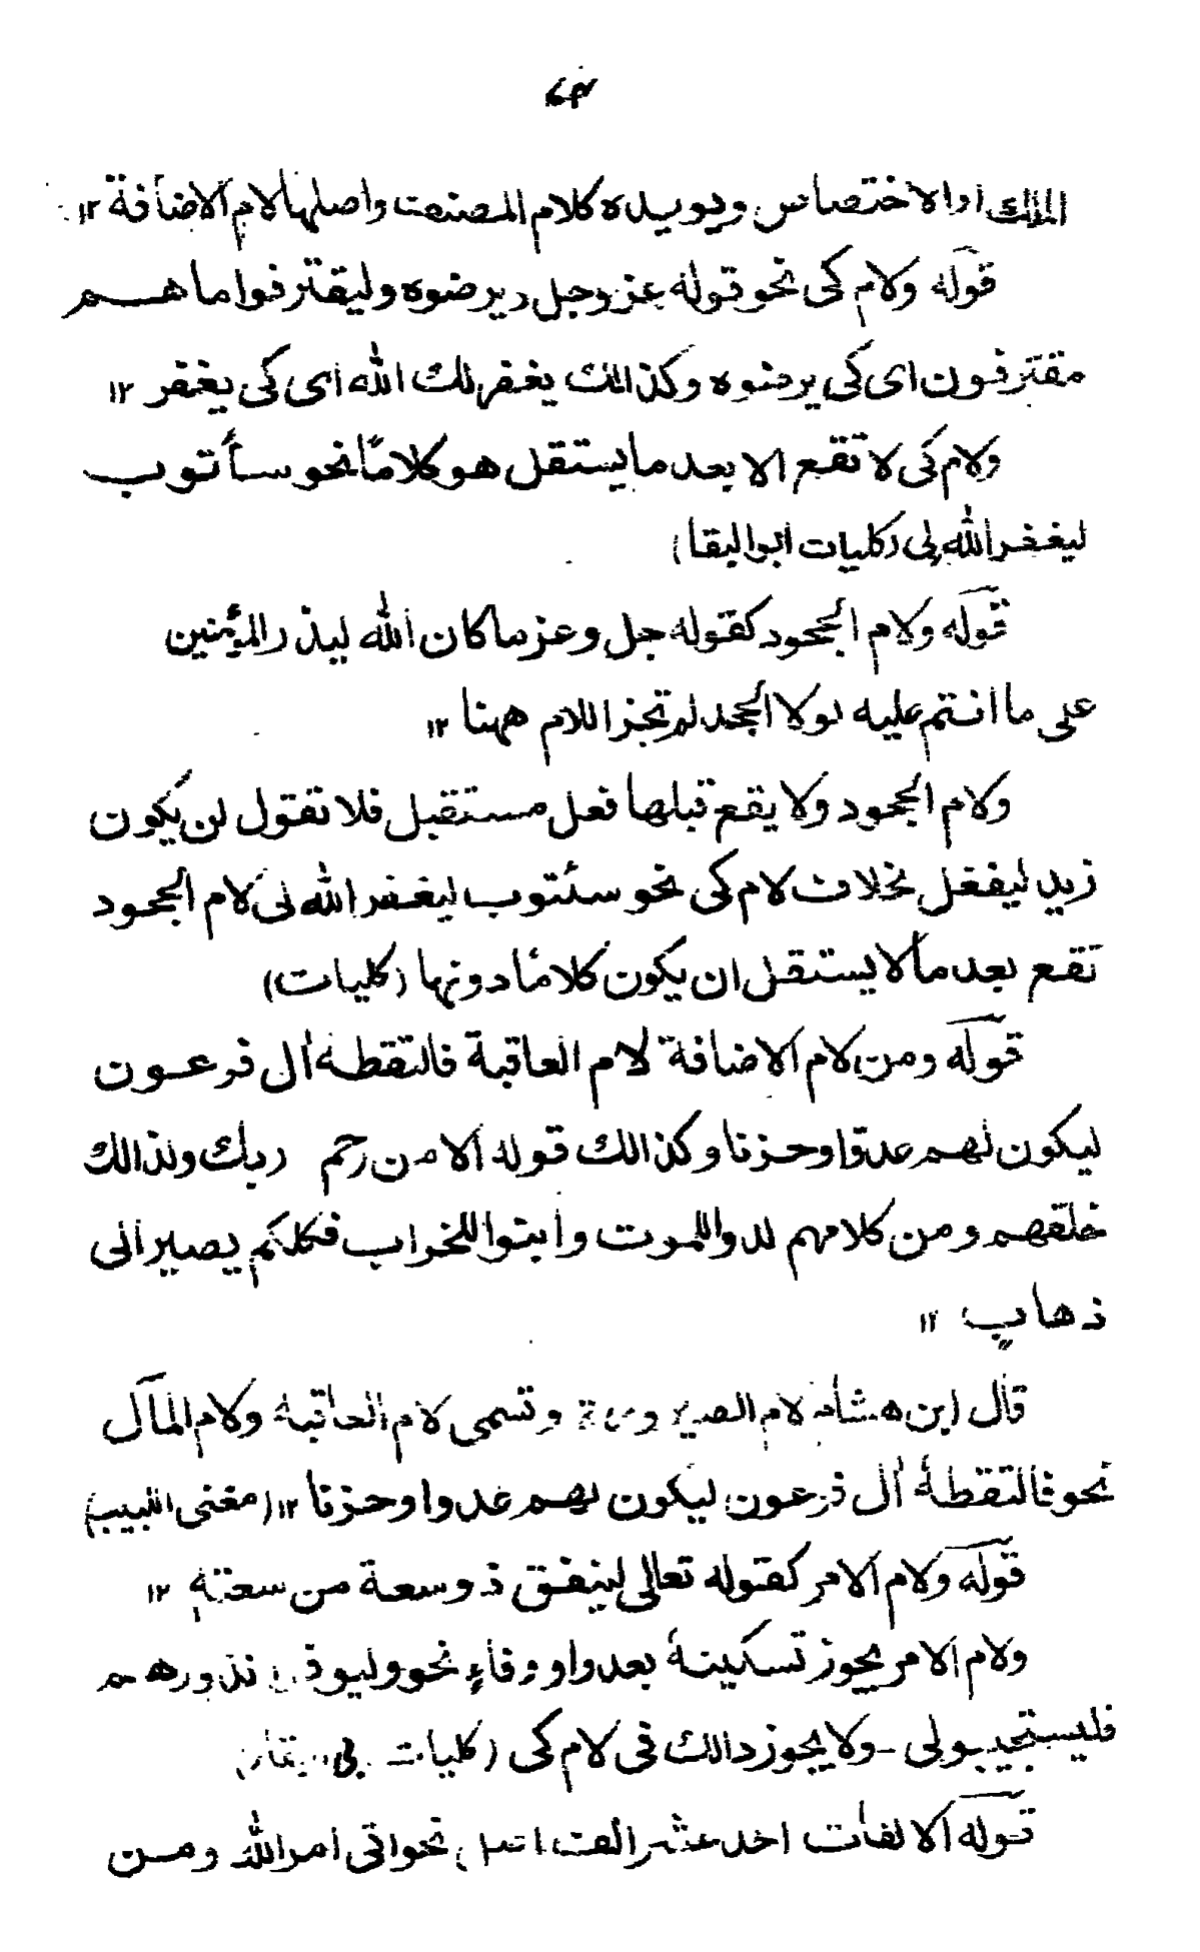 ۶۴
الملك او الاختصاص ويويده كلام المصنف واصلها لام الاضافة ۱۲
قوله ولام كى نحو قوله عز وجل وليرضوه وليقترفوا ما هم
مقترفون اى كى يرضوه وكذالك يغفر لك الله اى كى يغفر ۱۲
ولام كى لا تقع الا بعد ما يستقل هو كلامًا نحو سأتوب
ليغفر الله لى (كليات ابو البقا)
قوله ولام الجحود كقوله جل وعز ما كان الله ليذر المؤمنين
على ما انتم عليه لولا الجحد لم تجز اللام ههنا ۱۲
ولام الجحود ولا يقع قبلها فعل مستقبل فلا تقول لن يكون
زيد ليفعل بخلاف لام كى نحو سئتوب ليغفر الله لى لام الجحود
تقع بعد ما لا يستقل ان يكون كلامًا دونها (كليات)
قوله ومن لام الاضافة لام العاقبة فالتقطه أل فرعون
ليكون لهم عدوا وحزنا وكذالك قوله الا من رحم ربك ولذالك
خلقهم ومن كلامهم لدوا للموت وابنوا للخراب فكلكم يصير الى
ذهاب ۱۲
قال ابن هشام لام الصيرورة وتسمى لام العاقبة ولام المآل
نحو فالتقطهٗ أل فرعون ليكون لهم عدوا وحزنا ۱۲ (مغنى اللبيب)
قوله ولام الامر كقوله تعالى لينفق ذو سعة من سعته ۱۲
ولام الامر يجوز تسكينهٗ بعد واو وفاءٍ نحو وليوفوا نذورهم
فليستجيبولى - ولا يجوز ذالك فى لام كى (كليات
قوله الالفات احد عشر الف نحو اتى امر الله ومن